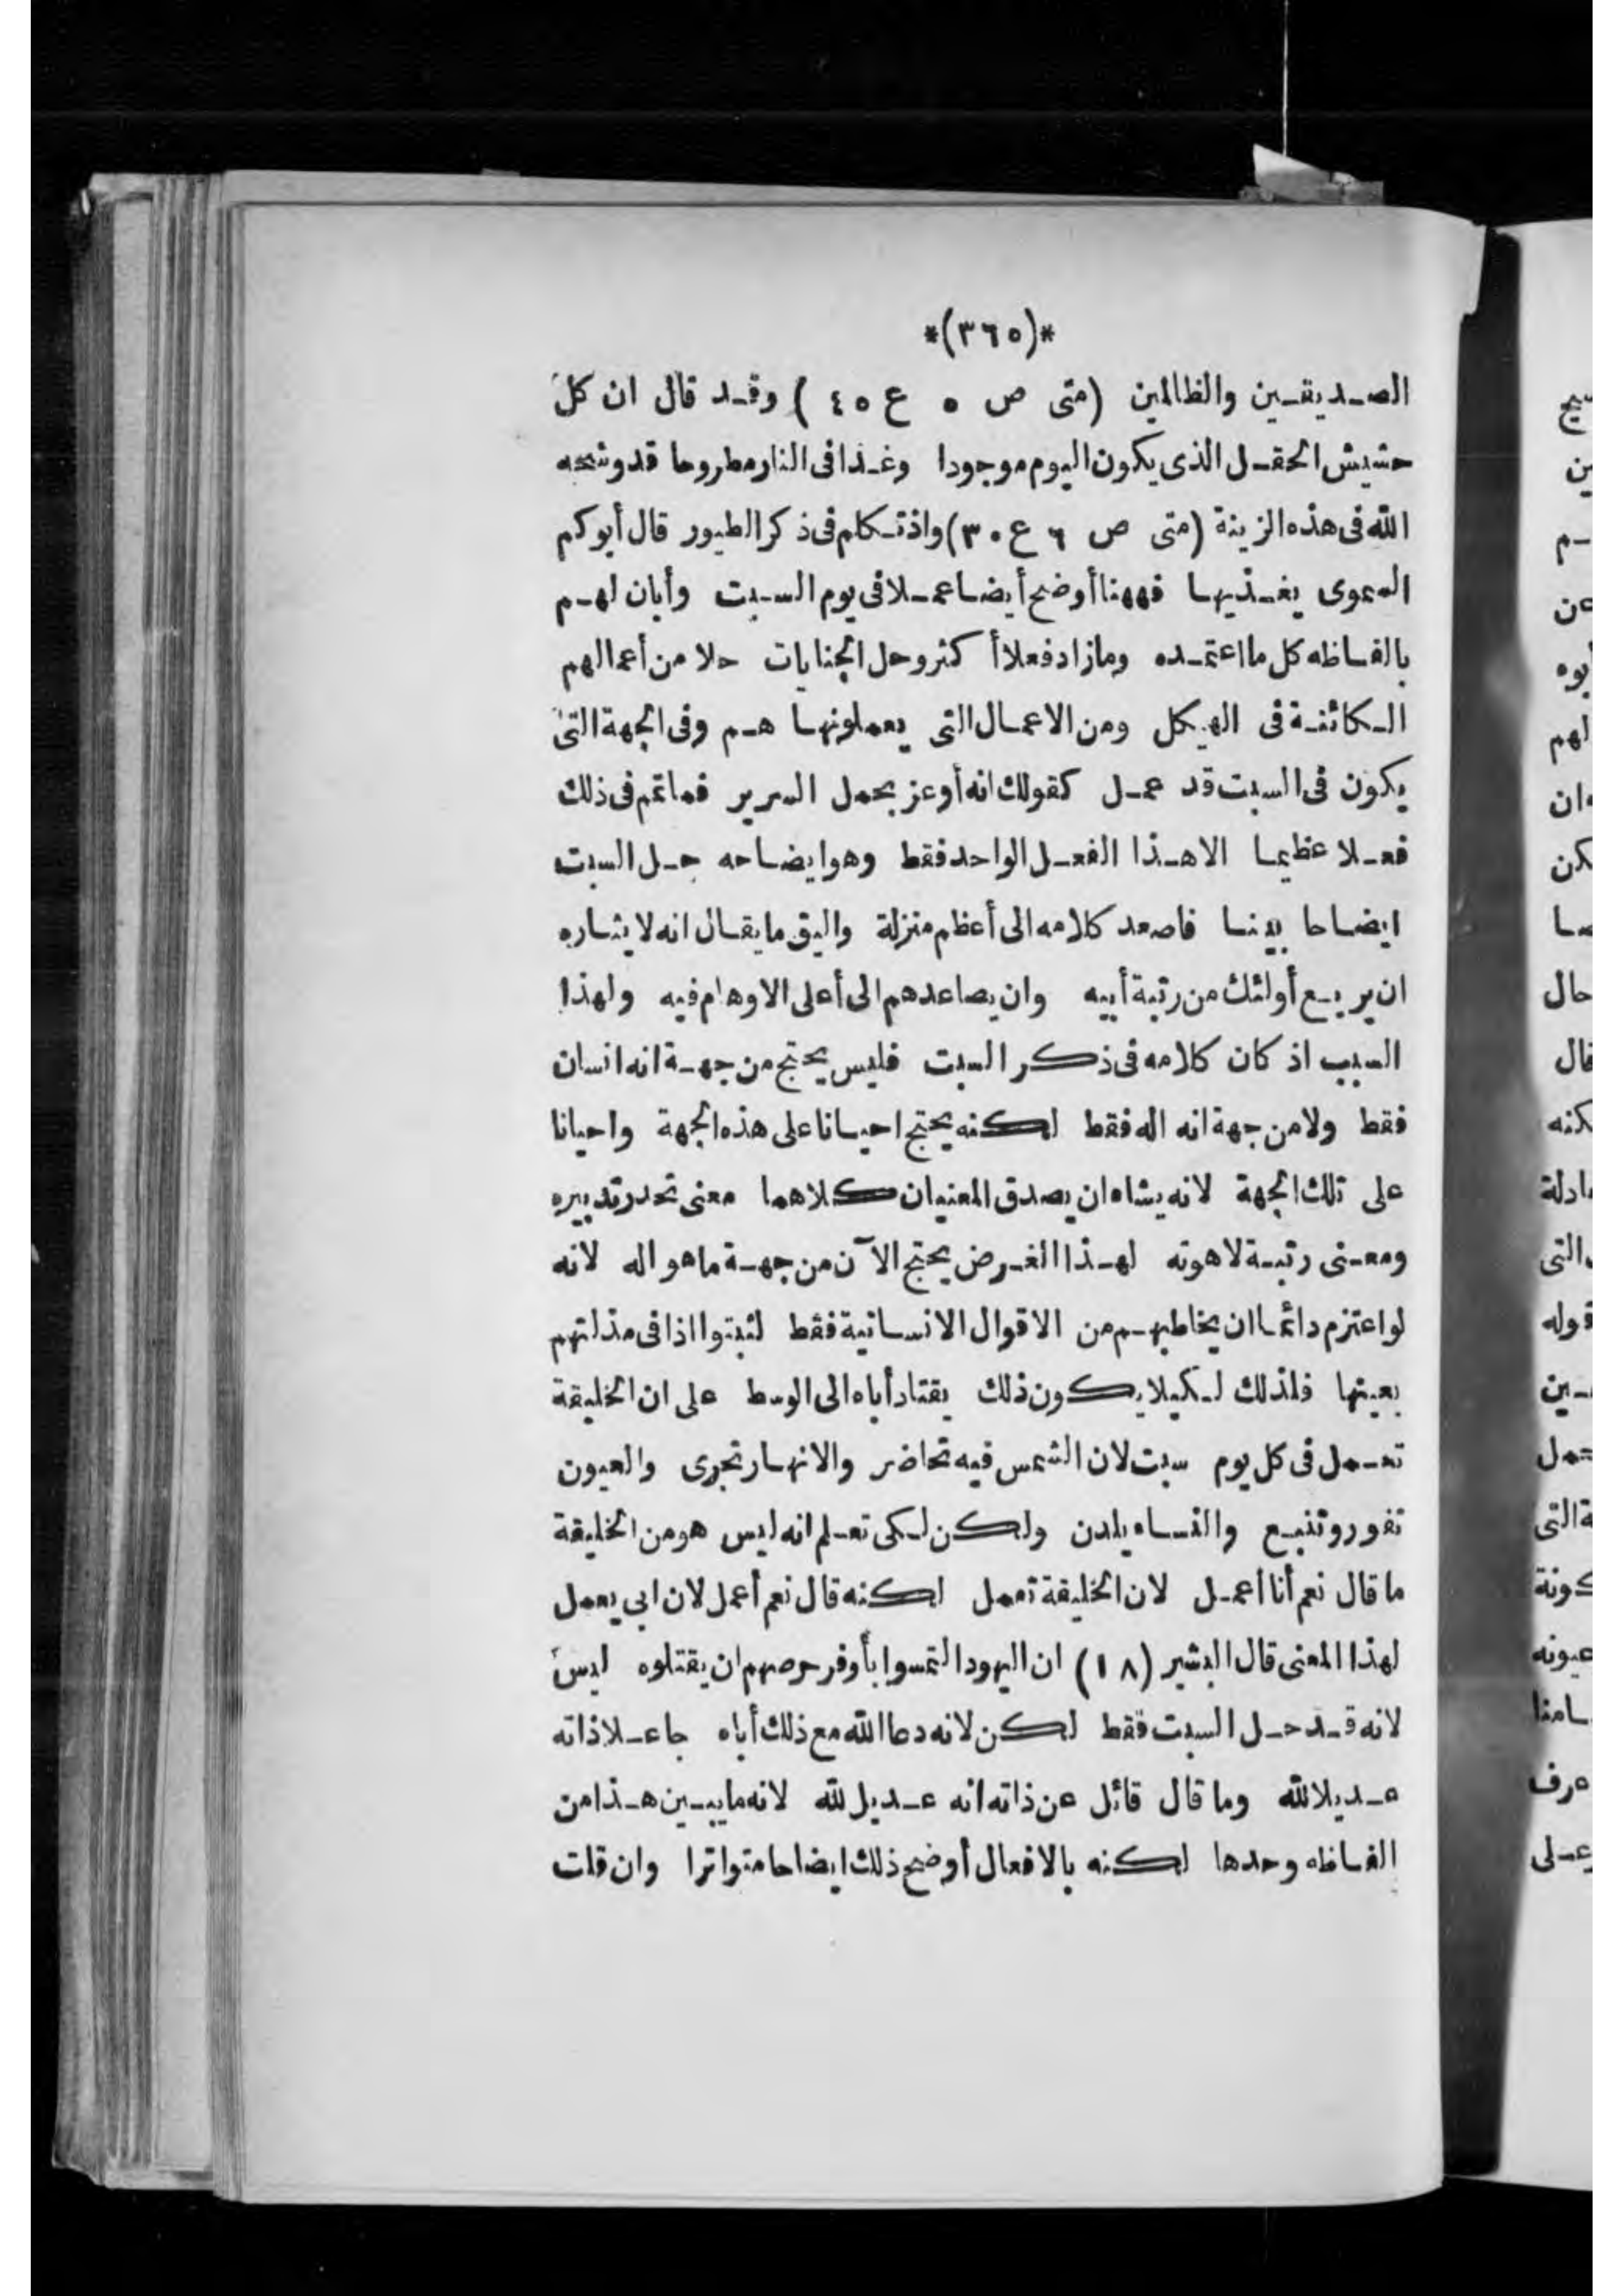 *(٣٦٥)*
الصديقين والظالمين (متى ص ٥ ع ٤٥) وقد قال ان كل
حشيش الحقل الذى يكون اليوم موجودا وغدا فى النار مطروحا قد وشحه
الله فى هذه الزينة (متى ص ٦ ع ٣٠) واذ تكلم فى ذكر الطيور قال أبوكم
السموى يغذيها فههنا أوضح أيضا عملا فى يوم السبت وأبان لهم
بالفاظه كل ما اعتمده وما زاد فعلا أكثر وحل الجنايات حلا من أعمالهم
الكائنة فى الهيكل ومن الاعمال التى يعملونها هم وفى الجهة التى
يكون فى السبت قد عمل كقولك انه أوعز بحمل السرير فما تمم فى ذلك
فعلا عظيما الا هذا الفعل الواحد فقط وهو ايضاحه حل السبت
ايضاحا بينا فاصعد كلامه الى أعظم منزلة واليق ما يقال انه لا يشاربه
ان يريع أولئك من رتبة أبيه وان يصاعدهم الى أعلى الاوهام فيه ولهذا
السبب اذ كان كلامه فى ذكر السبت فليس يحتج من جهة انه انسان
فقط ولا من جهة انه اله فقط لكنه يحتج احيانا على هذه الجهة واحيانا
على تلك الجهة لانه يشاء ان يصدق المعنيان كلاهما معنى تحدر تدبيره
ومعنى رتبة لاهوته لهذا الغرض يحتج الآن من جهة ما هو اله لانه
لو اعتزم دائما ان يخاطبهم من الاقوال الانسانية فقط لثبتوا اذا فى مذلتهم
بعينها فلذلك لكيلا يكون ذلك يقتاد أباه الى الوسط على ان الخليقة
تعمل فى كل يوم سبت لان الشمس فيه تحاضر والانهار تجرى والعيون
تفور وتنبع والنساء يلدن ولكن لكى تعلم انه ليس هو من الخليقة
ما قال نعم أنا أعمل لان الخليقة تعمل لكنه قال نعم أعمل لان ابى يعمل
لهذا المعنى قال البشير (١٨) ان اليهود التمسوا بأوفر حرصهم ان يقتلوه ليس
لانه قد حل السبت فقط لكن لانه دعا الله مع ذلك أباه جاعلا ذاته
عديلا لله وما قال قائل عن ذاته انه عديل لله لانه ما يبين هذا من
الفاظه وحدها لكنه بالافعال أوضح ذلك ايضاحا متواترا وان قلت